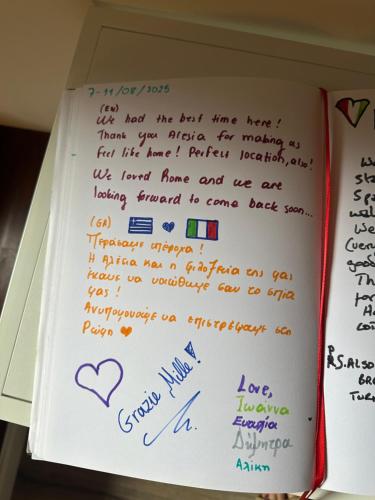 7-11/08/2025
(EN)
We had the best time here!
Thank you Alesia for making us
feel like home! Perfect location, also!
We loved Rome and we are
looking forward to come back soon...
(GR)
Περάσαμε υπέροχα!
Η Αλέσια και η φιλοξενία της μας
έκανε να νοιώθουμε σαν το σπίτι
μας!
Ανυπομονούμε να επιστρέψουμε στη
Ρώμη
Grazie Mille!
Love,
Ιωάννα
Ευαγγελία
Δήμητρα
Αλίκη
We
sta
Spa
We
(very
good
Th
for
P.S. Also